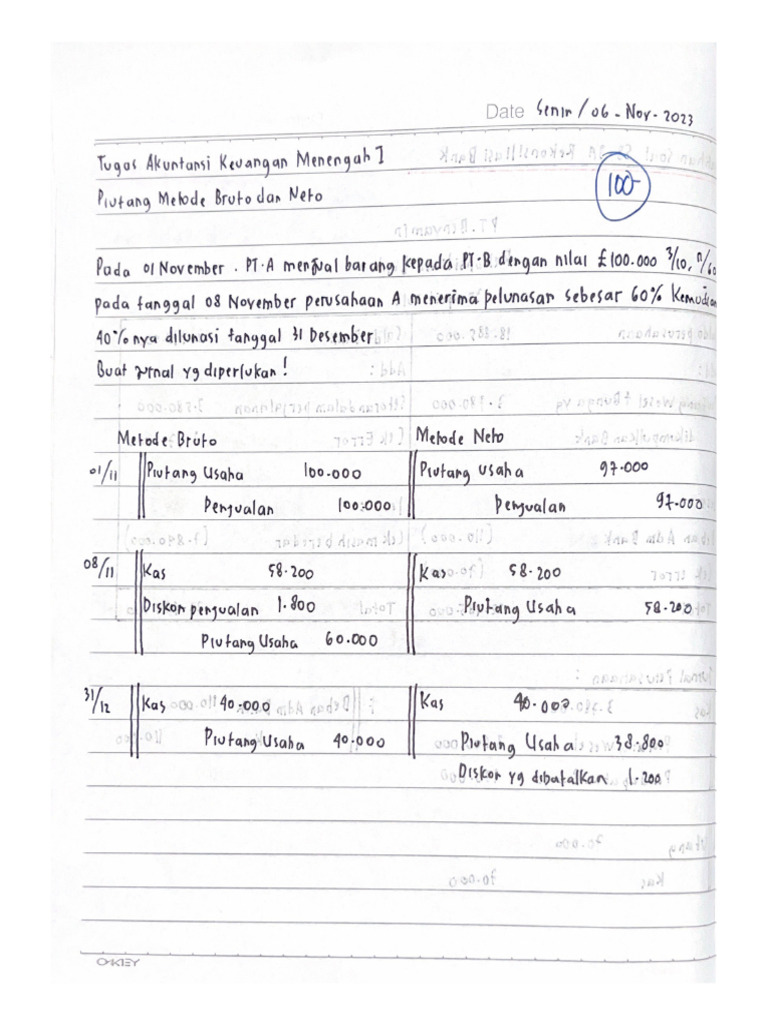 Date Senin / 06 - Nov - 2023
Tugas Akuntansi Keuangan Menengah I
100
Piutang Metode Bruto dan Neto
Pada 01 November . PT.A menjual barang kepada PT.B dengan nilai £100.000 3/10, n/60
pada tanggal 08 November perusahaan A menerima pelunasan sebesar 60% Kemudian
40% nya dilunasi tanggal 31 Desember
Buat jurnal yg diperlukan !
Metode Bruto Metode Neto
01/11 Piutang Usaha 100.000 Piutang usaha 97.000
Penjualan 100.000 Penjualan 97.000
08/11 Kas 58.200 Kas 58.200
Diskon penjualan 1.800 Piutang Usaha 58.200
Piutang Usaha 60.000
31/12 Kas 40.000 Kas 40.000
Piutang Usaha 40.000 Piutang Usaha 38.800
Diskon yg dibatalkan 1.200
OAKEY